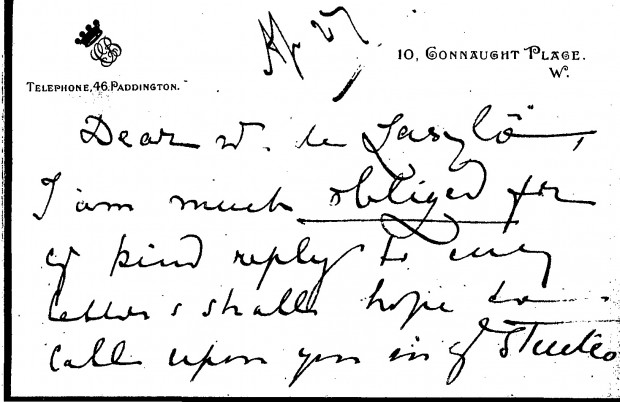 Ap 27
10, CONNAUGHT PLACE.
W.
TELEPHONE, 46, PADDINGTON.
Dear M. de Laszlò,
I am much obliged for
yr kind reply to my
letter & shall hope to
call upon you in yr Studio